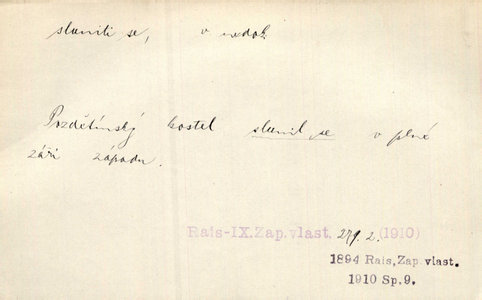 slaniti se, v nedok.
Pozdětínský kostel slanil se v plné
září západu.
Rais-IX.Zap.vlast. 279.2. (1910)
1894 Rais, Zap. vlast.
1910 Sp. 9.